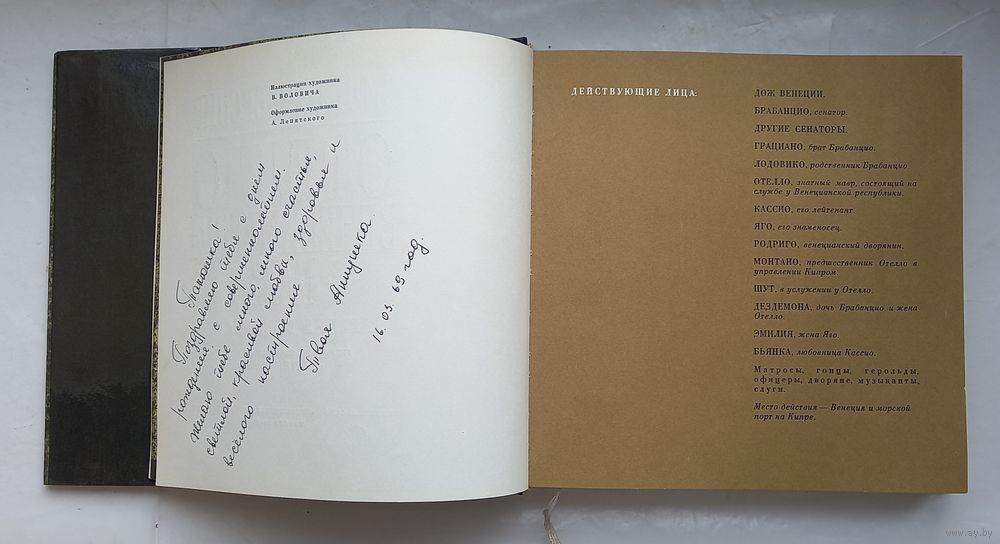 Иллюстрации художника
В. ВОЛОВИЧА
Оформление художника
А. Лепятского
Танюшка!
Поздравляю тебя с днем
рождения, с совершеннолетием.
Желаю тебе много, много счастья,
светлой, красивой любви, здоровья и
весёлого настроения
Твоя Аннушка.
16.03.69 год.
ДЕЙСТВУЮЩИЕ ЛИЦА:
ДОЖ ВЕНЕЦИИ.
БРАБАНЦИО, сенатор.
ДРУГИЕ СЕНАТОРЫ.
ГРАЦИАНО, брат Брабанцио.
ЛОДОВИКО, родственник Брабанцио
ОТЕЛЛО, знатный мавр, состоящий на
службе у Венецианской республики.
КАССИО, его лейтенант.
ЯГО, его знаменосец.
РОДРИГО, венецианский дворянин.
МОНТАНО, предшественник Отелло в
управлении Кипром.
ШУТ, в услужении у Отелло.
ДЕЗДЕМОНА, дочь Брабанцио и жена
Отелло.
ЭМИЛИЯ, жена Яго.
БЬЯНКА, любовница Кассио.
Матросы, гонцы, герольды,
офицеры, дворяне, музыканты,
слуги.
Место действия — Венеция и морской
порт на Кипре.
www.ay.by